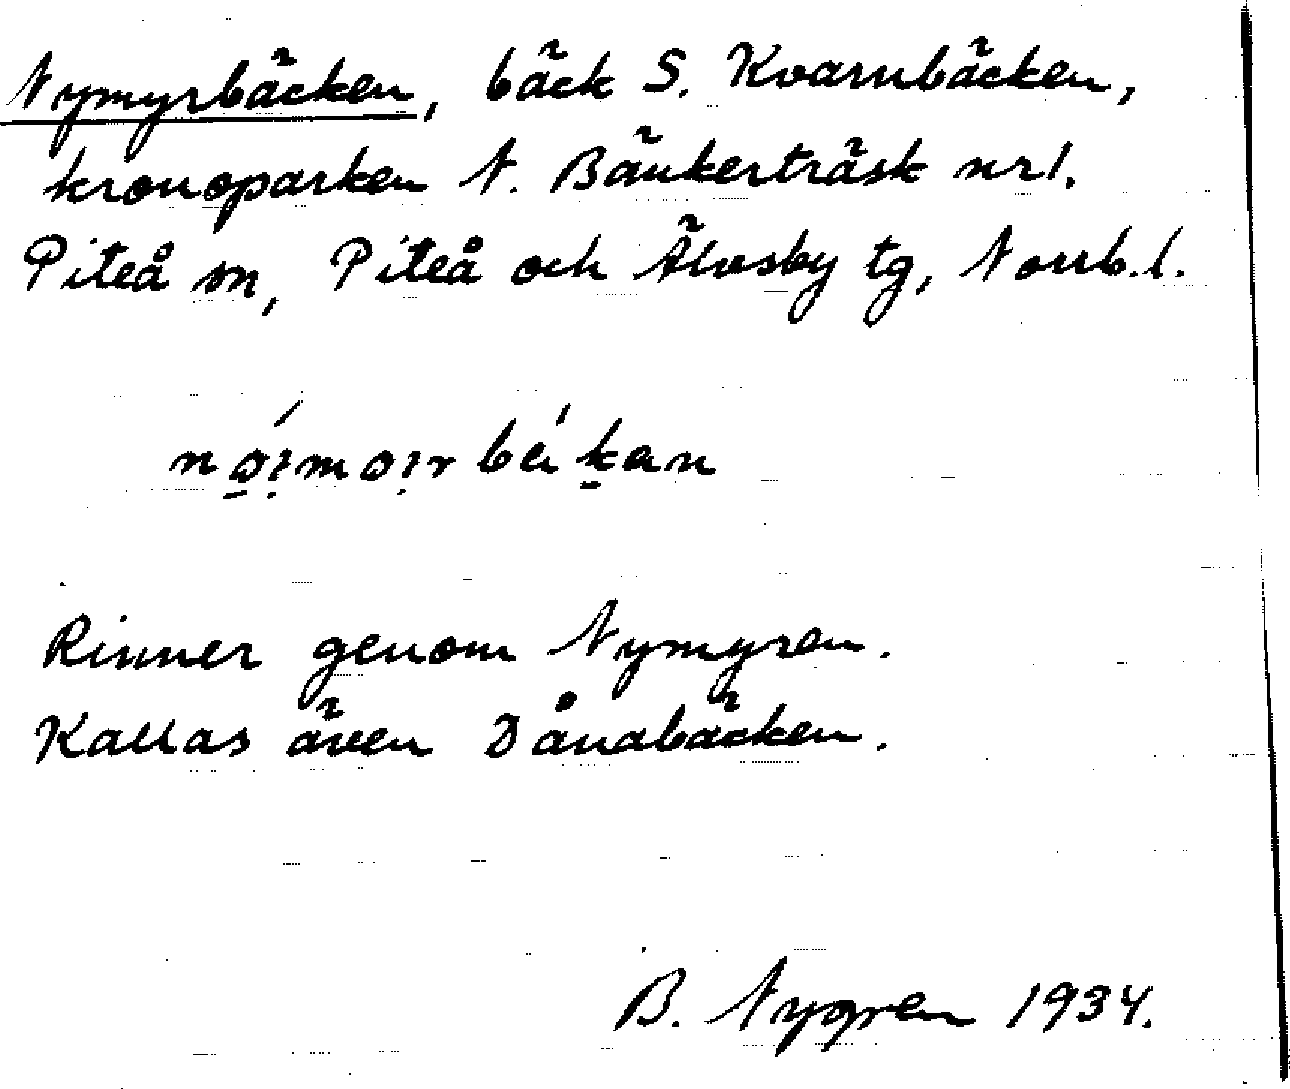 Nymyrbäcken, bäck S. Kvarnbäcken,
kronoparken N. Bänkerträsk nr 1.
Piteå sn, Piteå och Älvsby tg, Norrb. l.
Rinner genom Nymyren.
Kallas även Dånabäcken.
B. Nygren 1934.